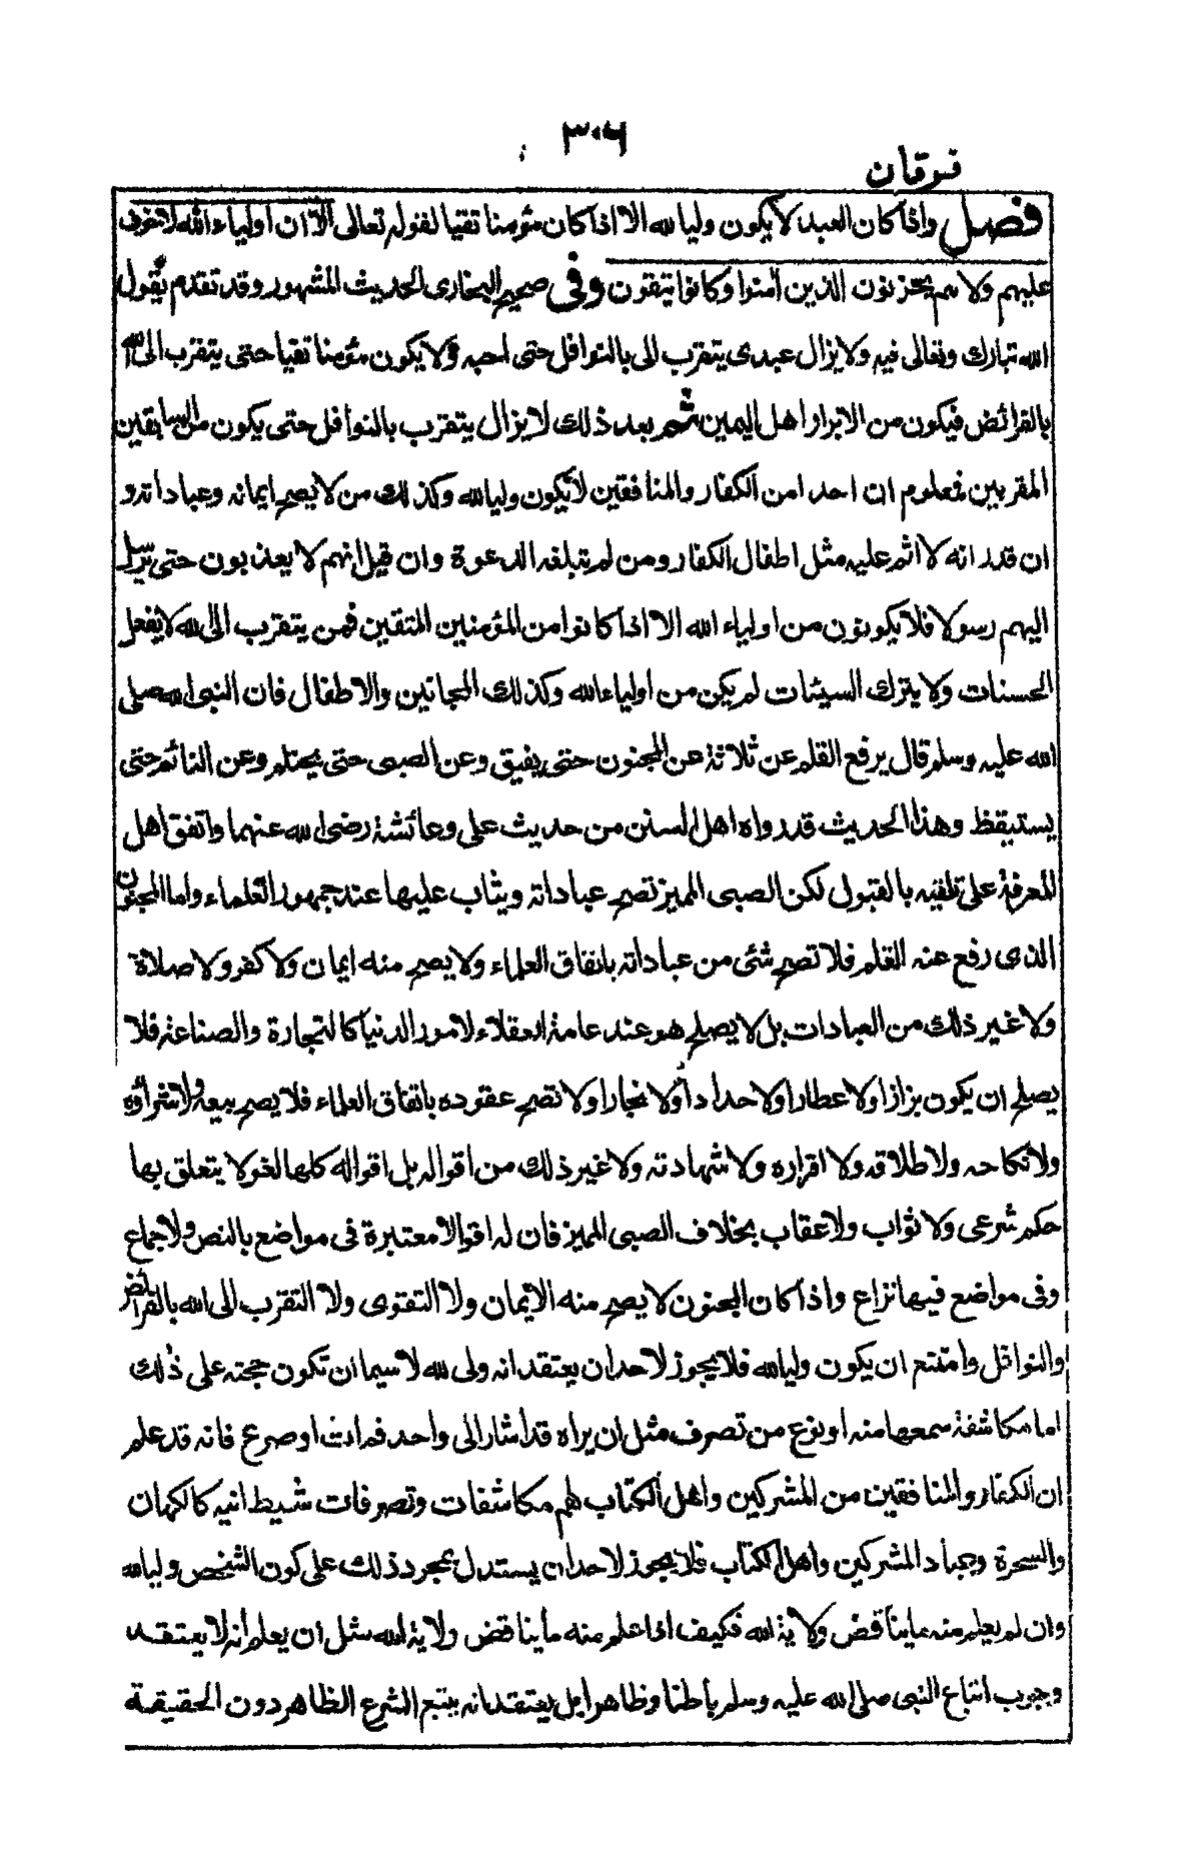 ٣٠٦
فرقان
فصل واذا كان العبد لا يكون وليا لله الا اذا كان مؤمنا تقيا لقوله تعالى الآ ان اولياء الله لا خوف
عليهم ولا هم يحزنون الذين آمنوا وكانوا يتقون وفى صحيح البخارى الحديث المشهور وقد تقدم يقول
الله تبارك وتعالى فيه ولا يزال عبدى يتقرب الى بالنوافل حتى احبه ولا يكون مؤمنا تقيا حتى يتقرب الى الله
بالفرائض فيكون من الابرار اهل اليمين ثم بعد ذلك لا يزال يتقرب بالنوافل حتى يكون من السابقين
المقربين فمعلوم ان احدا من الكفار والمنافقين لا يكون وليا لله وكذلك من لا يصح ايمانه وعباداته و
ان قدر انه لا اثم عليه مثل اطفال الكفار ومن لم تبلغه الدعوة وان قيل انهم لا يعذبون حتى يرسل
اليهم رسولا فلا يكونون من اولياء الله الا اذا كانوا من المؤمنين المتقين فمن يتقرب الى الله لا يفعل
الحسنات ولا يترك السيئات لم يكن من اولياء الله وكذلك المجانين والاطفال فان النبى الله صلى
الله عليه وسلم قال يرفع القلم عن ثلاثة عن المجنون حتى يفيق وعن الصبى حتى يحتلم وعن النائم حتى
يستيقظ وهذا الحديث قد رواه اهل السنن من حديث على وعائشة رضى الله عنهما واتفق اهل
المعرفة على تلقيه بالقبول لكن الصبى المميز تصح عباداته ويثاب عليها عند جمهور العلماء واما المجنون
الذى رفع عنه القلم فلا تصح شئى من عباداته باتفاق العلماء ولا يصح منه ايمان ولا كفر ولا صلاة
ولا غير ذلك من العبادات بل لا يصلح هو عند عامة العقلاء لامور الدنيا كالتجارة والصناعة فلا
يصلح ان يكون بزازا ولا عطارا ولا حدادا ولا نجارا ولا تصح عقوده باتفاق العلماء فلا يصح بيعه ولا شراؤه
ولا نكاحه ولا طلاقه ولا اقراره ولا شهادته ولا غير ذلك من اقواله بل اقواله كلها لغو لا يتعلق بها
حكم شرعى ولا ثواب ولا عقاب بخلاف الصبى المميز فان له اقوالا معتبرة فى مواضع بالنص والاجماع
وفى مواضع فيها نزاع واذا كان المجنون لا يصح منه الايمان ولا التقوى ولا التقرب الى الله بالفرائض
والنوافل وامتنع ان يكون وليا لله فلا يجوز لاحد ان يعتقد انه ولى لله لا سيما ان تكون حجته على ذلك
اما مكاشفة سمعها منه او نوع من تصرف مثل ان يراه قد اشار الى واحد فمات او صرع فانه قد علم
ان الكفار والمنافقين من المشركين واهل الكتاب لهم مكاشفات وتصرفات شيطانيه كالكهان
والسحرة وعباد المشركين واهل الكتاب فلا يجوز لاحد ان يستدل بمجرد ذلك على كون الشخص وليا لله
وان لم يعلم منه ما يناقض ولاية الله فكيف اذا علم منه ما يناقض ولاية الله مثل ان يعلم انه لا يعتقد
وجوب اتباع النبى صلى الله عليه وسلم باطنا وظاهرا بل يعتقد انه يتبع الشرع الظاهر دون الحقيقة